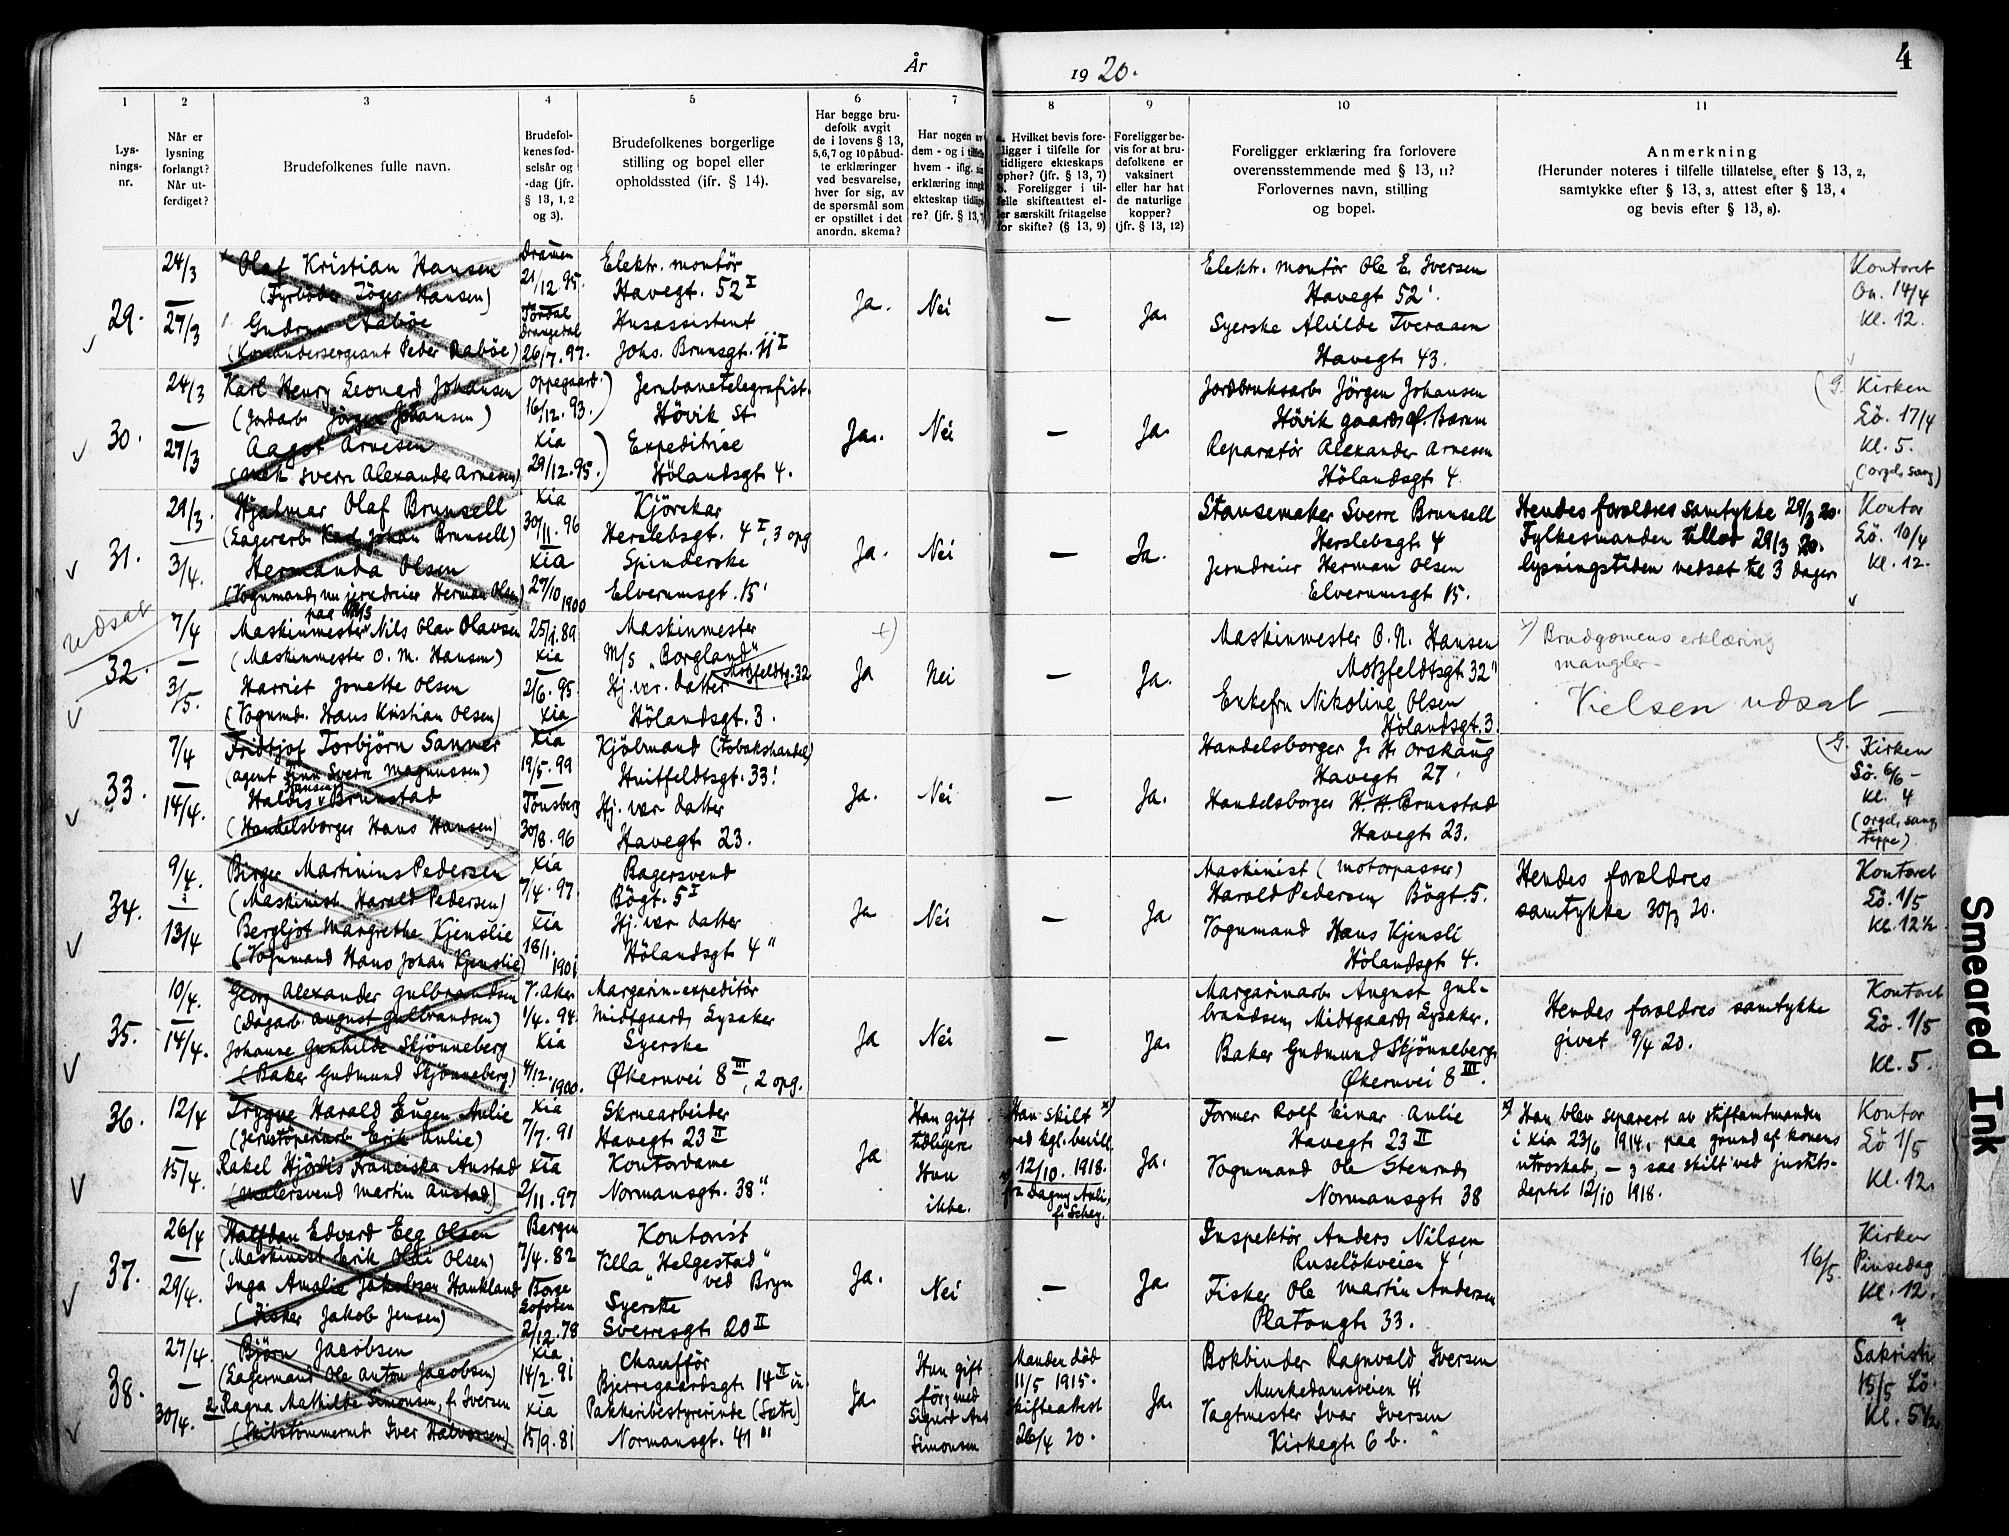 År 1920.
4
1 2 3 4 5 6 7 8 9 10 11
Lysningsnr.
Når er lysning forlangt? Når utferdiget?
Brudefolkenes fulle navn.
Brudefolkenes fødselsår og -dag (jfr. § 13, 1, 2 og 3).
Brudefolkenes borgerlige stilling og bopel eller opholdssted (ifr. § 14).
Har begge brudefolk avgit de i lovens § 13, 5,6,7 og 10 påbudte erklæringer ved besvarelse, hver for sig, av de spørsmål som er opstillet i det anordn. skema?
Har nogen av dem - og i tilfelle hvem - iflg. sin erklæring inngått ekteskap tidligere? (jfr. § 13, 7)
a. Hvilket bevis foreligger i tilfelle for tidligere ekteskaps ophør? (jfr. § 13, 7) b. Foreligger i tilfelle skifteattest eller særskilt fritagelse for skifte? (§ 13, 9)
Foreligger bevis for at brudefolkene er vaksinert eller har hat de naturlige kopper? (jfr. § 13, 12)
Foreligger erklæring fra forlovere overensstemmende med § 13, 11? Forlovernes navn, stilling og bopel.
Anmerkning (Herunder noteres i tilfelle tillatelse, efter § 13, 2, samtykke efter § 13, 3, attest efter § 13, 4 og bevis efter § 13, 8).
29. 24/3 — 27/3
Olaf Kristian Hansen
(Fyrböder Töger Hansen)
Gudrun Aabøe
(Komandersergeant Peder Aabøe)
Dramen 21/12.95.
Tördal Drangedal 26/7.97.
Elektr. montör
Havegt. 52 I
Husassistent
Johs. Brunsgt. 11 I
Ja. Nei — Ja.
Elektr. montör Ole E. Iversen
Havegt 52'.
Syerske Alvilde Tveraaen
Havegt 43.
Kontoret
On. 14/4
Kl. 12.
30. 24/3 — 27/3
Karl Henry Leonard Johansen
(Jordarb. Jörgen Johansen)
Aagot Arnesen
(Mek Sverre Alexander Arnesen)
Oppegaard. 16/12.93.
Xia 29/12.95.
Jernbanetelegrafist.
Hövik St.
Expeditrice
Hölandsgt 4.
Ja. Nei — Ja.
Jordbruksarb. Jörgen Johansen
Hövik gaard, Ö. Bærum
Reparatör Alexander Arnesen
Hölandsgt 4
G. Kirken
Lö. 17/4
Kl. 5.
(orgel, sang)
31. 29/3. 3/4.
Hjalmar Olaf Brunsell
(Lagerarb. Karl Johan Brunsell)
Hermanda Olsen
(Vognmand, nu jerndreier Herman Olsen)
Xia 30/11.96
Xia 27/10 1900
Kjörekar
Herslebsgt. 4 I, 3 opg
Spinderske
Elverumsgt. 15'
Ja. Nei — Ja.
Stansemaker Sverre Brunsell
Herslebsgt 4
Jerndreier Herman Olsen
Elverumsgt 15.
Hendes forældres samtykke 29/3 20.
Fylkesmanden tillod 29/3 20.
lysningstiden nedsat til 3 dager
Kontor
Lö. 10/4
Kl. 12.
udsat
32. 7/4 — 3/5.
paa M/S
Maskinmester Nils Olav Olavsen
(Maskinmester O. M. Hansen)
Harriet Jonette Olsen
(Vognmd. Hans Kristian Olsen)
25/9.89 Xia
2/6.95. Xia
Maskinmester
M/S „Borgland"
Motzfeldtg. 32
Hj. vær. datter
Hölandsgt. 3.
x) Ja Nei — Ja.
Maskinmester O. N. Hansen
Motzfeldtsgt 32"
Enkefru Nikoline Olsen
Hölandsgt. 3.
x) Brudgomens erklæring
mangler.
Vielsen udsat —
33. 7/4 — 14/4.
Fridtjof Torbjörn Sanner
(agent Finn Sverre Magnussen)
Haldis Hansen Brunstad
(Handelsborger Hans Hansen)
Xia 19/5.99
Tönsberg 30/8.96
Kjölmand (Tobakshandel)
Huitfeldtsgt. 33!
Hj. vær datter
Havegt 23.
Ja. Nei — Ja.
Handelsborger J. H. Orskaug
Havegt 27'
Handelsborger H. H. Brunstad
Havegt 23.
G. Kirken
Lö. 6/6 –
Kl. 4
(orgel, sang, teppe)
34. 9/4. 13/4
Birger Martinius Pedersen
(Maskinist Harald Pedersen)
Bergljot Margrethe Kjenslie
(Vognmand Hans Johan Kjenslie)
Xia 7/4.97
Xia 18/1. 1901
Bagersvend
Bögt. 5 I
Hj. vær datter
Hölandsgt 4"
Ja Nei — Ja
Maskinist (Motorpasser)
Harald Pedersen, Bögt. 5.
Vognmand Hans Kjensli
Hölandsgt 4.
Hendes forældres
samtykke 30/3 20.
Kontoret
Lö. 1/5
Kl. 12 1/2
35. 10/4. — 14/4.
Georg Alexander Gulbrandsen
(Dagarb. August Gulbrandsen)
Johanne Gunhilde Skjönneberg
(Baker Gudmund Skjönneberg)
V. Aker 1/4.94.
Xia 4/12. 1900.
Margarin-expeditör
Midtgaard, Lysaker
Syerske
Økernvei 8 III, 2 opg.
Ja Nei — Ja.
Margarinarb. August Gulbrandsen, Midtgaard, Lysaker.
Baker Gudmund Skjönneberg,
Økernvei 8 III.
Hendes forældres samtykke
givet 9/4 20.
Kontoret
Lö. 1/5
Kl. 5.
36. 12/4 — 15/4.
Trygve Harald Eugen Aulie
(Jernstöperiarb. Erik Aulie)
Rakel Hjördis Franciska Anstad
(Malersvend Martin Anstad)
Xia 7/7.91
Xia 2/11.97
Skruearbeider
Havegt 23 II
Kontordame
Normansgt. 38."
Ja
Han gift tidligere Hun ikke.
Han skilt x) ved kgl. bevill. 12/10. 1918. fra Dagny Aulie, f.
Ja.
Former Rolf Einar Aulie
Havegt 23 II
Vognmand Ole Stenrud,
Normansgt 38
x) Han blev separert av stiftamtmanden
i Xia 23/6 1914, paa grund af konens
utroskab, — og saa skilt ved justits-
deptet 12/10 1918.
Kontor
Lö 1/5
Kl. 12.
37. 26/4 — 29/4.
Halfdan Edvard Eeg Olsen
(Maskinist Erik Olai Olsen)
Inga Amalie Jakobsen Haukland
(Fisker Jakob Jensen)
Bergen 7/4.82
Borge Lofoten 2/12.78
Kontorist
Villa „Helgestad"
ved Bryn
Syerske
Sverresgt 20 II
Ja. Nei — Ja.
Inspektör Anders Nilsen
Ruselökveien 4'
Fisker Ole Martin Andersen
Platougt 33.
16/5.
Kirken
Pinsedag
Kl. 12.
38. 27/4. — 30/4.
Björn Jacobsen
(Lagermand Ole Anton Jacobsen)
2. Ragna Mathilde Simonsen, f. Iversen
(Skibstömmermt Iver Halvorsen)
Xia 14/2.91
Xia 15/9.81
Chauffør
Bjerregaardsgt 14 I
Pakkeribestyrerinde (Sætre)
Normansgt. 41"
Ja.
Hun gift för, med Sigurd Ant Simonsen
Manden död 11/5 1915. Skifteattest 26/4 20.
Ja.
Bokbinder Ragnvald Iversen
Munkedamsveien 41
Vagtmester Ivar Iversen
Kirkegt 6 b.
Sakristi
15/5 Lö.
Kl. 5 1/2
Smeared Ink